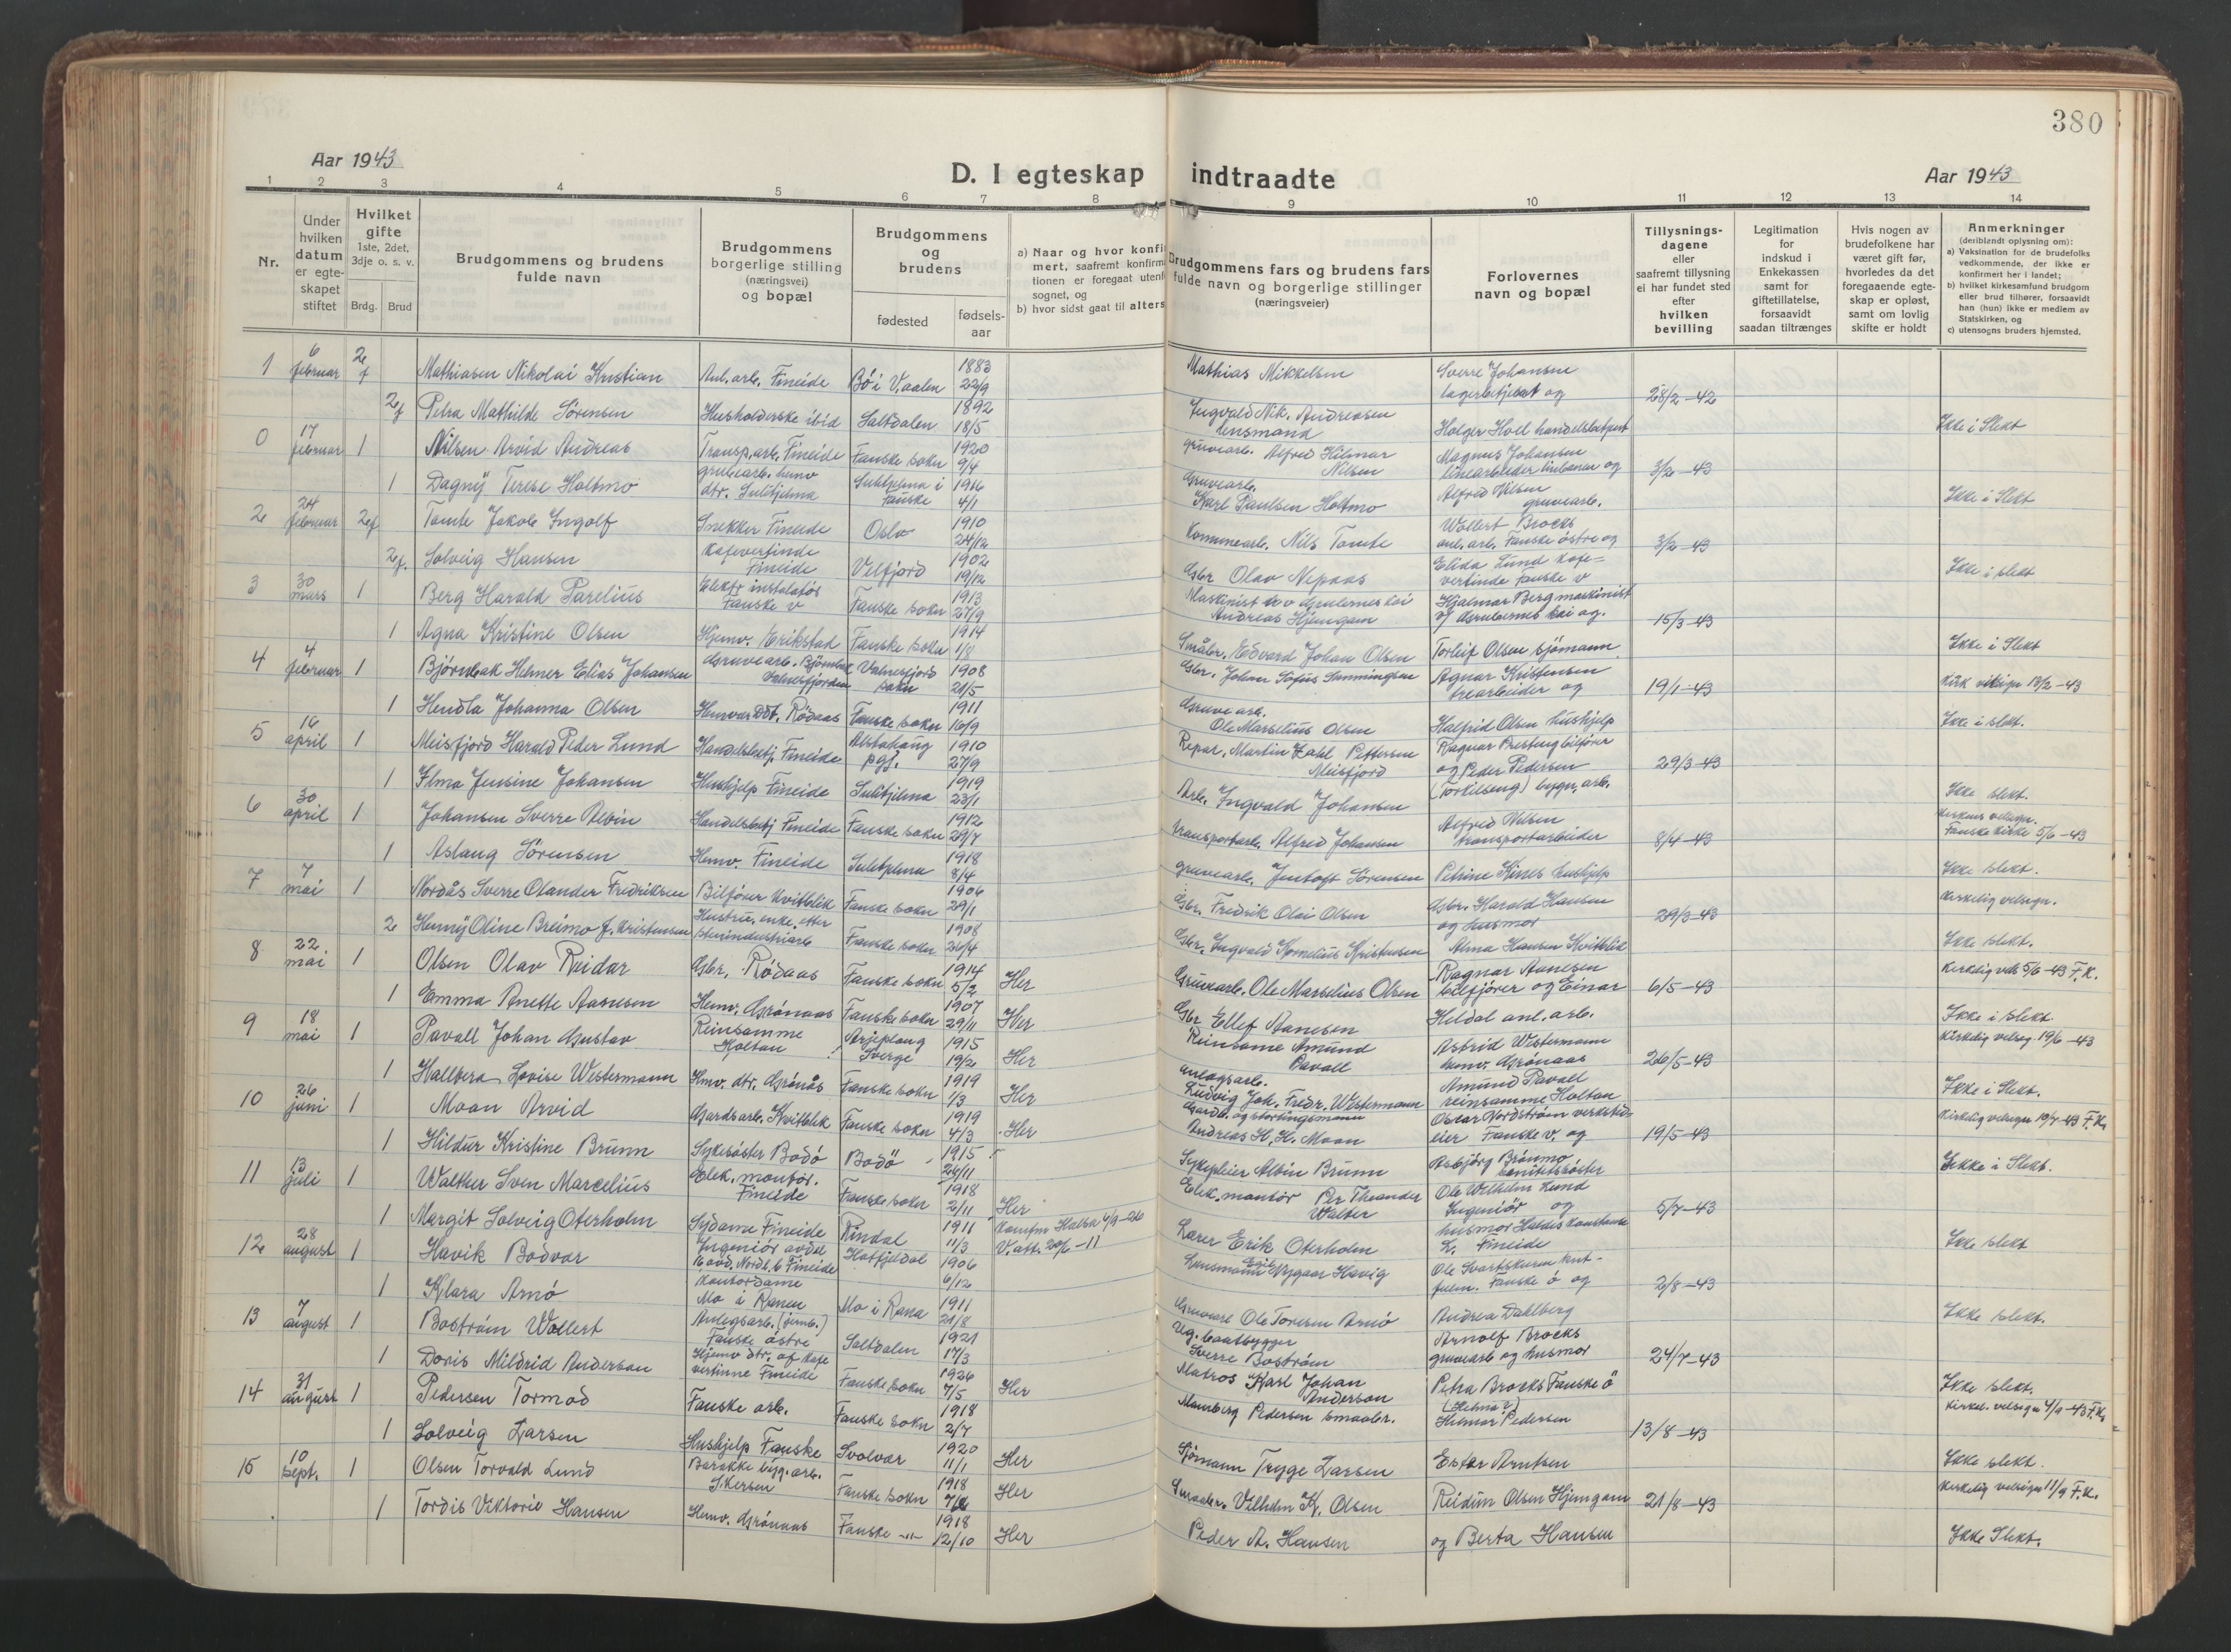 380
Aar 1943
D. I egteskap indtraadte
Aar 1943
1 2 3 4 5 6 7 8 9 10 11 12 13 14
Nr.
Under hvilken datum er egteskapet stiftet
Hvilket gifte 1ste, 2det, 3dje o. s. v.
Brdg. Brud
Brudgommens og brudens fulde navn
Brudgommens borgerlige stilling (næringsvei) og bopæl
Brudgommens og brudens
fødested
fødsels-aar
a) Naar og hvor konfir
mert, saafremt konfirm
tionen er foregaat utenf
sognet, og
b) hvor sidst gaat til alters
Brudgommens fars og brudens fars
fulde navn og borgerlige stillinger
(næringsveier)
Forlovernes
navn og bopæl
Tillysnings-
dagene
eller
saafremt tillysning
ei har fundet sted
efter
hvilken
bevilling
Legitimation
for
indskud i
Enkekassen
samt for
giftetillatelse,
forsaavidt
saadan tiltrænges
Hvis nogen av
brudefolkene har
været gift før,
hvorledes da det
foregaaende egte-
skap er opløst,
samt om lovlig
skifte er holdt
Anmerkninger
(deriblandt oplysning om):
a) Vaksination for de brudefolks
vedkommende, der ikke er
konfirmert her i landet;
b) hvilket kirkesamfund brudgom
eller brud tilhører, forsaavidt
han (hun) ikke er medlem av
Statskirken, og
c) utensogns bruders hjemsted.
1 6 februar 2 f Mathiasen Nikolai Kristian Anl. arb. Fineide Bö i V.aalen 1883 22/9 Mathias Mikkelsen Sverre Johansen lagerbetjent og 28/2-42
2 f Petra Mathilde Sörensen Husholderske ibid Saltdalen 1892 18/5 Ingvald Nik. Andreasen lensmand Holger Holl handelsbetjent Ikke i Slekt
0 17 februar 1 Nilsen Arvid Andreas Transp.arb. Fineide Fauske sokn 1920 9/4 gruvearb. Alfred Hilmar Nilsen Magnus Johansen linearbeider linbanen og 3/2-43
1 Dagny Terese Holtmo grubearb. hmv dtr. Sulitjelma Sulitjelma i Fauske 1916 4/1 Gruvearb. Karl Paulsen Holtmo Alfred Nilsen gruvearb. Ikke i Slekt
2 24 februar 2 f Tomte Jakob Ingolf Snekker Fineide Oslo 1910 24/12 Kommunearb. Nils Tomte Wollert Brocks anl. arb. Fauske östre og 3/2-43
2 f. Solveig Hansen Kafevertinde Fineide Velfjord 1902 19/12 Gbr Olav Nepaas Elida Lund kafe- vertinde Fauske v Ikke i slekt
3 30 mars 1 Berg Harald Parelius Elektr instalatör Fauske v Fauske sokn 1913 27/9 Maskinist Andreas Hjemgam Hjalmar Berg maskinist v/ Grubernes kai og. 15/3-43
1 Agna Kristine Olsen Hjemv. Erikstad Fauske sokn 1914 1/8 Småbr. Edvard Johan Olsen Torleif Olsen sjömann Ikke i Slekt
4 4 februar 1 Björnbak Helmer Elias Johansen Gruvearb. Björnbak Valnesfjorden Valnesfjord sokn 1908 21/5 Gbr. Johan Sofus Simmingsen Agnar Kristensen trearbeider og 19/1-43 Kirk 13/2-43
1 Hendla Johanna Olsen Hemvær. Ddt. Rödaas Fauske sokn 1911 16/9 Gruvearb. Ole Marselius Olsen Halfrid Olsen hushjelp Ikke i slekt.
5 16 april 1 Meisfjord Harald Peder Lund Handelsbetj. Fineide Alstahaug pgj. 1910 27/9 Repar. Martin Zahl Pettersen Meisfjord Ragnar bilförer og Peder Pedersen 29/3-43
1 Ilma Jensine Johansen Hushjelp Fineide Sulitjelma 1919 23/1 Arb. Ingvald Johansen (Torkilseng) bygn. arb. Ikke slekt.
6 30 april 1 Johansen Sverre Alvin Handelsbetj Fineide Fauske sokn 1912 29/7 transportarb. Alfred Johansen Alfred Nilsen transportarbeider 8/4-43 Kirkens velsign. Fauske kirke 5/6-43
1 Aslaug Sörensen Hmv. Fineide Sulitjelma 1918 8/4 gruvearb. Jentoft Sörensen Petrine Kines hushjelp Ikke slekt.
7 7 mai 1 Nordås Sverre Olander Fredriksen Bilförer Kvitblik Fauske sokn 1906 29/1 Gbr. Fredrik Olai Olsen Gbr. Harald Hansen og husmor 29/3-43 Kirkelig velsign.
2 Henny Oline Breimo f. Kristensen Hustru, enke etter stenindustriarb Fauske sokn 1908 24/4 Gbr. Ingvald Kornelius Kristensen Alma Hansen Kvitblik Ikke slekt.
8 22 mai 1 Olsen Olav Reidar Gbr. Rödaas Fauske sokn 1914 5/2 Her Gruvearb. Ole Marselius Olsen Ragnar Aanesen bilförer og Einar 6/5-43 Kirkelig vels 5/6-43 F.K.
1 Emma Anette Aanesen Hemv. Grönaas Fauske sokn 1907 29/11 Her Gbr Ellef Aanesen Heldal anl. arb. Ikke i slekt
9 18 mai 1 Pavall Johan Gustav Reinsamme Holtan Arjeplaug Sverge 1915 19/2 Her Reinsame Amund Pavall Astrid Westermann hmv. Grönaas 26/5-43 Kirkelig velsog. 19/6-43
1 Hallbera Lovise Westermann Hmv. dtr. Grönås Fauske sokn 1919 1/3 Her anlagsarb. Ludvig Joh. Fredr. Westermann Amund Pavall reinsamme Holtan Ikke i Slekt.
10 26 juni 1 Moan Arvid Gardsarb. Kvitblik Fauske sokn 1919 4/3 Her Gardb. og stortingsmann Andreas H. K. Moan Oscar Nordström verksteieier Fauske v. og 19/5-43 Kirkelig velsign 10/7-43 F.K.
1 Hildur Kristine Brunn Sykesöster Bodö Bodö 1915 24/11 Sykepleier Albin Brunn Asbjörg Brönmo sanitetssöster Ikke i Slekt.
11 13 juli 1 Walther Sven Marcelius Elek. montör. Fineide Fauske sokn 1918 2/11 Her Elek. montör Per Theander Walter Ole Wilhelm Lund Ingeniör og 5/7-43
1 Margit Solveig Oterholm Sydame Fineide Rindal 1911 11/3 Konfm Halsa 4/9-26 V. att. 20/6-11 Lærer Erik Oterholm husmor Haldis Konstanse L. Fineide Ikke slekt
12 28 august 1 Havik Bodvar Ingeniör avdel Fineide Hatfjeldal 1906 6/12 Lensmann Nygaar Havig Ole Svartskuren Fauske ö og 2/8-43
1 Klara Arnö Kontordame Mo i Ranen Mo i Rana 1911 21/8 Gruvearb Ole Toresen Arnö Andrea Dahlberg Ikke slekt.
13 7 august 1 Boström Wollert Anlegsarb. (jernb.) Fauske östre Saltdalen 1921 17/3 Ug. baatbygger Sverre Boström Arnolf Brocks gruvearb og husmor 24/7-43
1 Doris Mildrid Anderson Hjemv dtr. af kafe vertinne Fineide Fauske sokn 1924 7/5 Her Matros Karl Johan Anderson Petra Brocks Fauske ö Ikke slekt.
14 31 august 1 Pedersen Tormod Fauske arb. Fauske sokn 1918 2/7 Pedersen smaabr. (Helmo?) Hilmar Pedersen 13/8-43 Kirkel. velsign 4/9-43 F.K.
1 Solveig Larsen Hushjelp Fauske Svolvær 1920 11/1 Her Sjömann Trygve Larsen Ester Arntsen Ikke slekt.
15 10 sept. 1 Olsen Torvald Lund Barakke bygg. arb. Fauske sokn 1918 7/6 Her Smaabr. Vilhelm K. Olsen Reidun Olsen Hjemgam 21/8-43 Kirkelig velsign 11/9 F.K.
1 Tordis Viktorie Hansen Hemv. Grönaas Fauske -"- 1918 12/10 Her Peder A. Hansen og Berta Hansen Ikke Slekt.